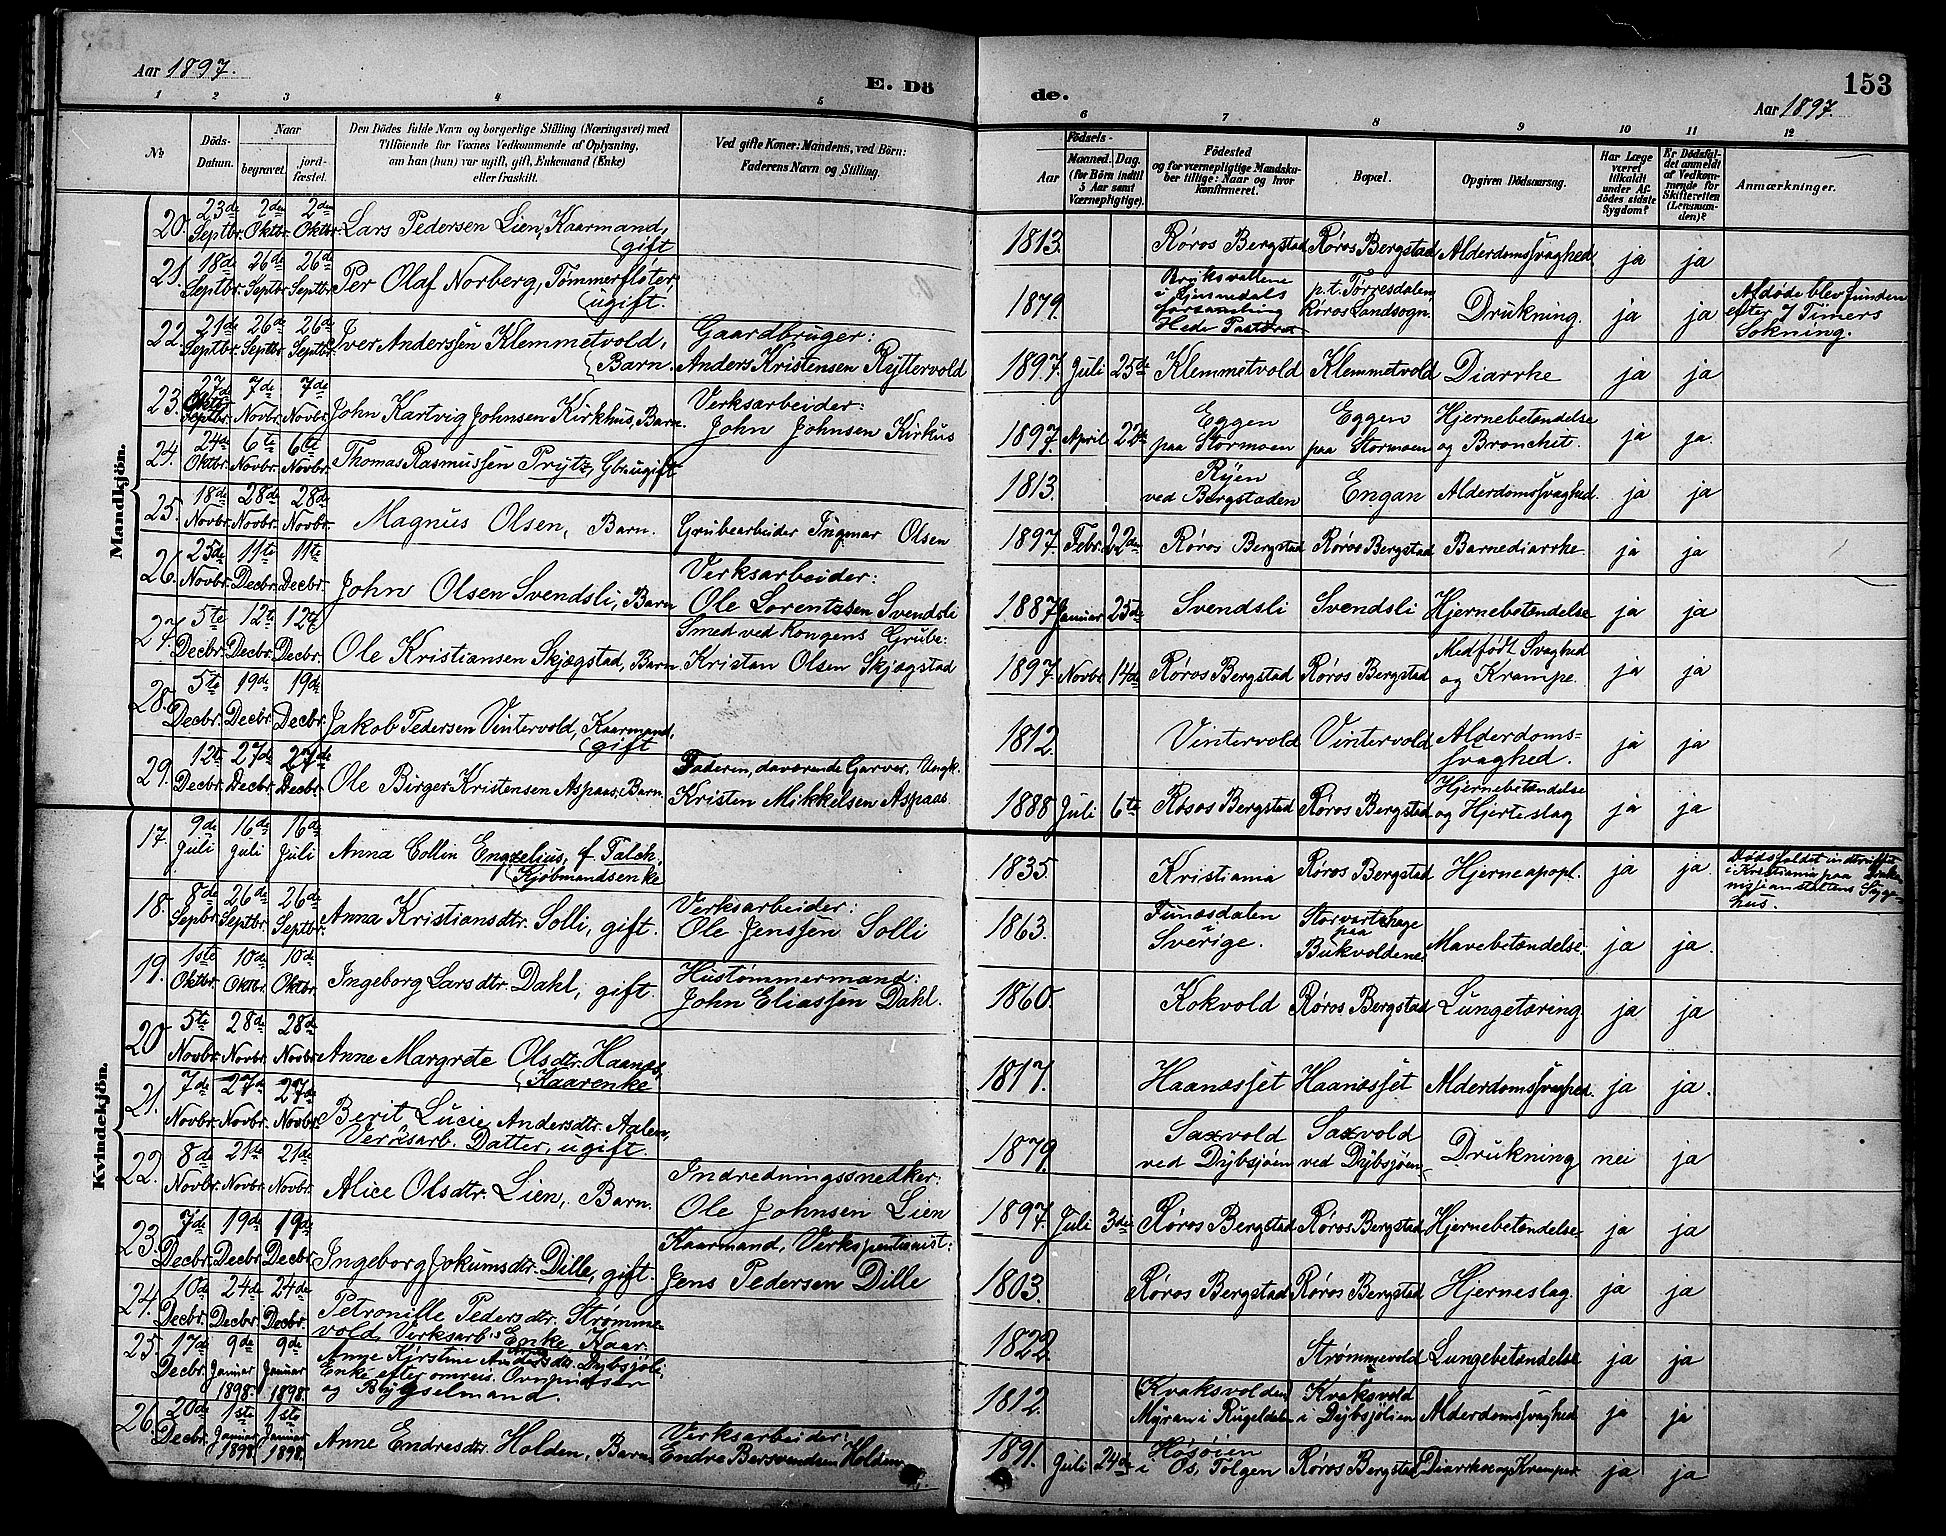 Aar 1897.
E. Dö
de.
153
Aar 1897.
1 2 3 4 5 6 7 8 9 10 11 12
No.
Döds-Datum.
Naar
begravet.
jord-fæstet.
Den Dödes fulde Navn og borgerlige Stilling (Næringsvei) med
Tilföiende for Voxnes Vedkommende af Oplysning,
om han (hun) var ugift, gift, Enkemand (Enke)
eller fraskilt.
Ved gifte Koner: Mandens, ved Börn:
Faderens Navn og Stilling.
Födsels-
Aar
Maaned. Dag.
(for Börn indtil
5 Aar samt
Værnepligtige).
Födested
og for værnepligtige Mandska-
ber tillige: Naar og hvor
konfirmeret.
Bopæl.
Opgiven Dödsaarsag.
Har Læge
været
tilkaldt
under Af-
dödes sidste
Sygdom?
Er Dödsfal-
det anmeldt
af Vedkom-
mende for
Skifteretten
(Lensman-
den)?
Anmærkninger.
Mandkjön.
20. 23de Septbr. 2den Oktbr. 2den Oktbr. Lars Pedersen Lien, Kaarmand, gift 1813. Røros Bergstad Røros Bergstad Alderdomssvaghed. ja ja
21. 18de Septbr. 26de Septbr. 26de Septbr. Per Olaf Norberg, Tømmerfløter, ugift. 1879. i Hede Pastorat p.t. Tørresdalen, Røros Landsogn. Drukning. ja ja Afdøde blev funden efter 7 Timers Søkning.
22. 21de Septbr. 26de Septbr. 26de Septbr. Iver Anderssen Klemmetvold, Barn. Gaardbruger: Anders Kristensen Ryttervold 1897. Juli 25de Klemmetvold Klemmetvold Diarrhe ja ja
23. 27de Oktbr. Septbr. 7de Novbr. 7de Novbr. John Hartvig Johnsen Kirkhus, Barn. Verksarbeider: John Johnsen Kirkus 1897. April 22de Eggen paa Stormoen Eggen paa Stormoen Hjernebetændelse og Bronchit. ja ja.
24. 24de Oktbr. 6te Novbr. 6te Novbr. Thomas Rasmussen Prytz, Gbr. ugift 1813. Ryen ved Bergstaden Engan Alderdomssvaghed. ja ja
25. 18de Novbr. 28de Novbr. 28de Novbr. Magnus Olsen, Barn. Grubearbeider Ingmar Olsen 1897. Febr. 22den Røros Bergstad Røros Bergstad Barnediarrhe. ja ja
26. 25de Novbr. 11te Decbr. 11te Decbr. John Olsen Svendsli, Barn Verksarbeider: Ole Lorentzsen Svendsli 1887 Januar 25de Svendsli Svendsli Hjernebetændelse ja ja
27. 5te Decbr. 12te Decbr. 12te Decbr. Ole Kristiansen Skjægstad, Barn Smed ved Kongens Grube: Kristen Olsen Skjægstad 1897. Novbr 14de Røros Bergstad Røros Bergstad Medfødt Svaghed og Krampe. ja ja
28. 5te Decbr. 19de Decbr. 19de Decbr. Jakob Pedersen Vintervold, Kaarmand, gift 1812. Vintervold Vintervold Alderdoms-svaghed. ja ja
29. 12te Decbr. 27de Decbr. 27de Decbr. Ole Birger Kristensen Aspaas, Barn. Faderen, daværende Garver, Ungk. Kristen Mikkelsen Aspaas 1888 Juli 6te Røros Bergstad Røros Bergstad Hjernebetændelse og Hjerteslag ja ja
Kvindekjön.
17 9de Juli 16de Juli 16de Juli Anna Collin Engzelius, f. Falch, Kjøbmandsenke 1835. Kristiania Røros Bergstad Hjerneapopl. ja ja. Dødsfaldet indtruffet i Kristiania paa Sygehus.
18. 8de Septbr. 26de Septbr. 26de Septbr. Anna Kristiansdtr. Solli, gift. Verksarbeider: Ole Jenssen Solli 1863. Funæsdalen i Sverige. Storvartshage paa Bukvoldene Mavebetændelse. ja ja
19. 1ste Oktbr. 10de Oktbr. 10de Oktbr. Ingeborg Larsdtr. Dahl, gift. Hustømmermand: John Eliassen Dahl. 1860. Kokvold Røros Bergstad Lungetæring ja ja
20 5te Novbr. 28de Novbr. 28de Novbr. Anne Margrete Olsdtr. Haanæs, Kaarenke 1817. Haanæsset Haanæsset Alderdomssvaghed. ja ja.
21. 7de Novbr. 27de Novbr. 27de Novbr. Berit Lucie Andersdtr. Aalen, Verksarb. Datter, ugift. 1879. Saxvold ved Dybsjøen Saxvold ved Dybsjøen Drukning nei ja
22. 8de Novbr. 21de Novbr. 21de Novbr. Alice Olsdtr. Lien, Barn. Indredningssnedker: Ole Johnsen Lien 1897. Juli 3die Røros Bergstad Røros Bergstad Hjernebetændelse ja ja
23. 7de Decbr. 19de Decbr. 19de Decbr. Ingeborg Jokumsdtr. Dille, gift. Kaarmand, Verkspentionist: Jens Pedersen Dille 1803. Røros Bergstad Røros Bergstad Hjerneslag. ja ja
24. 10de Decbr. 24de Decbr. 24de Decbr. Petronille Pedersdtr. Strømmevold, Verksarb.s Enke, Kaar. 1822 Strømmevold Lungebetændelse ja ja
25. 17de Decbr. 9de Januar 1898. 9de Januar 1898. Anne Kirstine Andersdtr. Dybsjøli, Enke efter og Bygselmand. 1812. Kvaksvolden Myran i Rugeldalen Kvaksvold i Dybsjølien Alderdomssvaghed ja ja
26. 20de Decbr. 1ste Januar 1898. 1ste Januar 1898. Anne Endresdtr. Holden, Barn Verksarbeider: Endre Bersvendsen Holden 1891. Juli 24de Høsøien i Os, Tolgen Røros Bergstad Diarrhoe og Kramper. ja ja